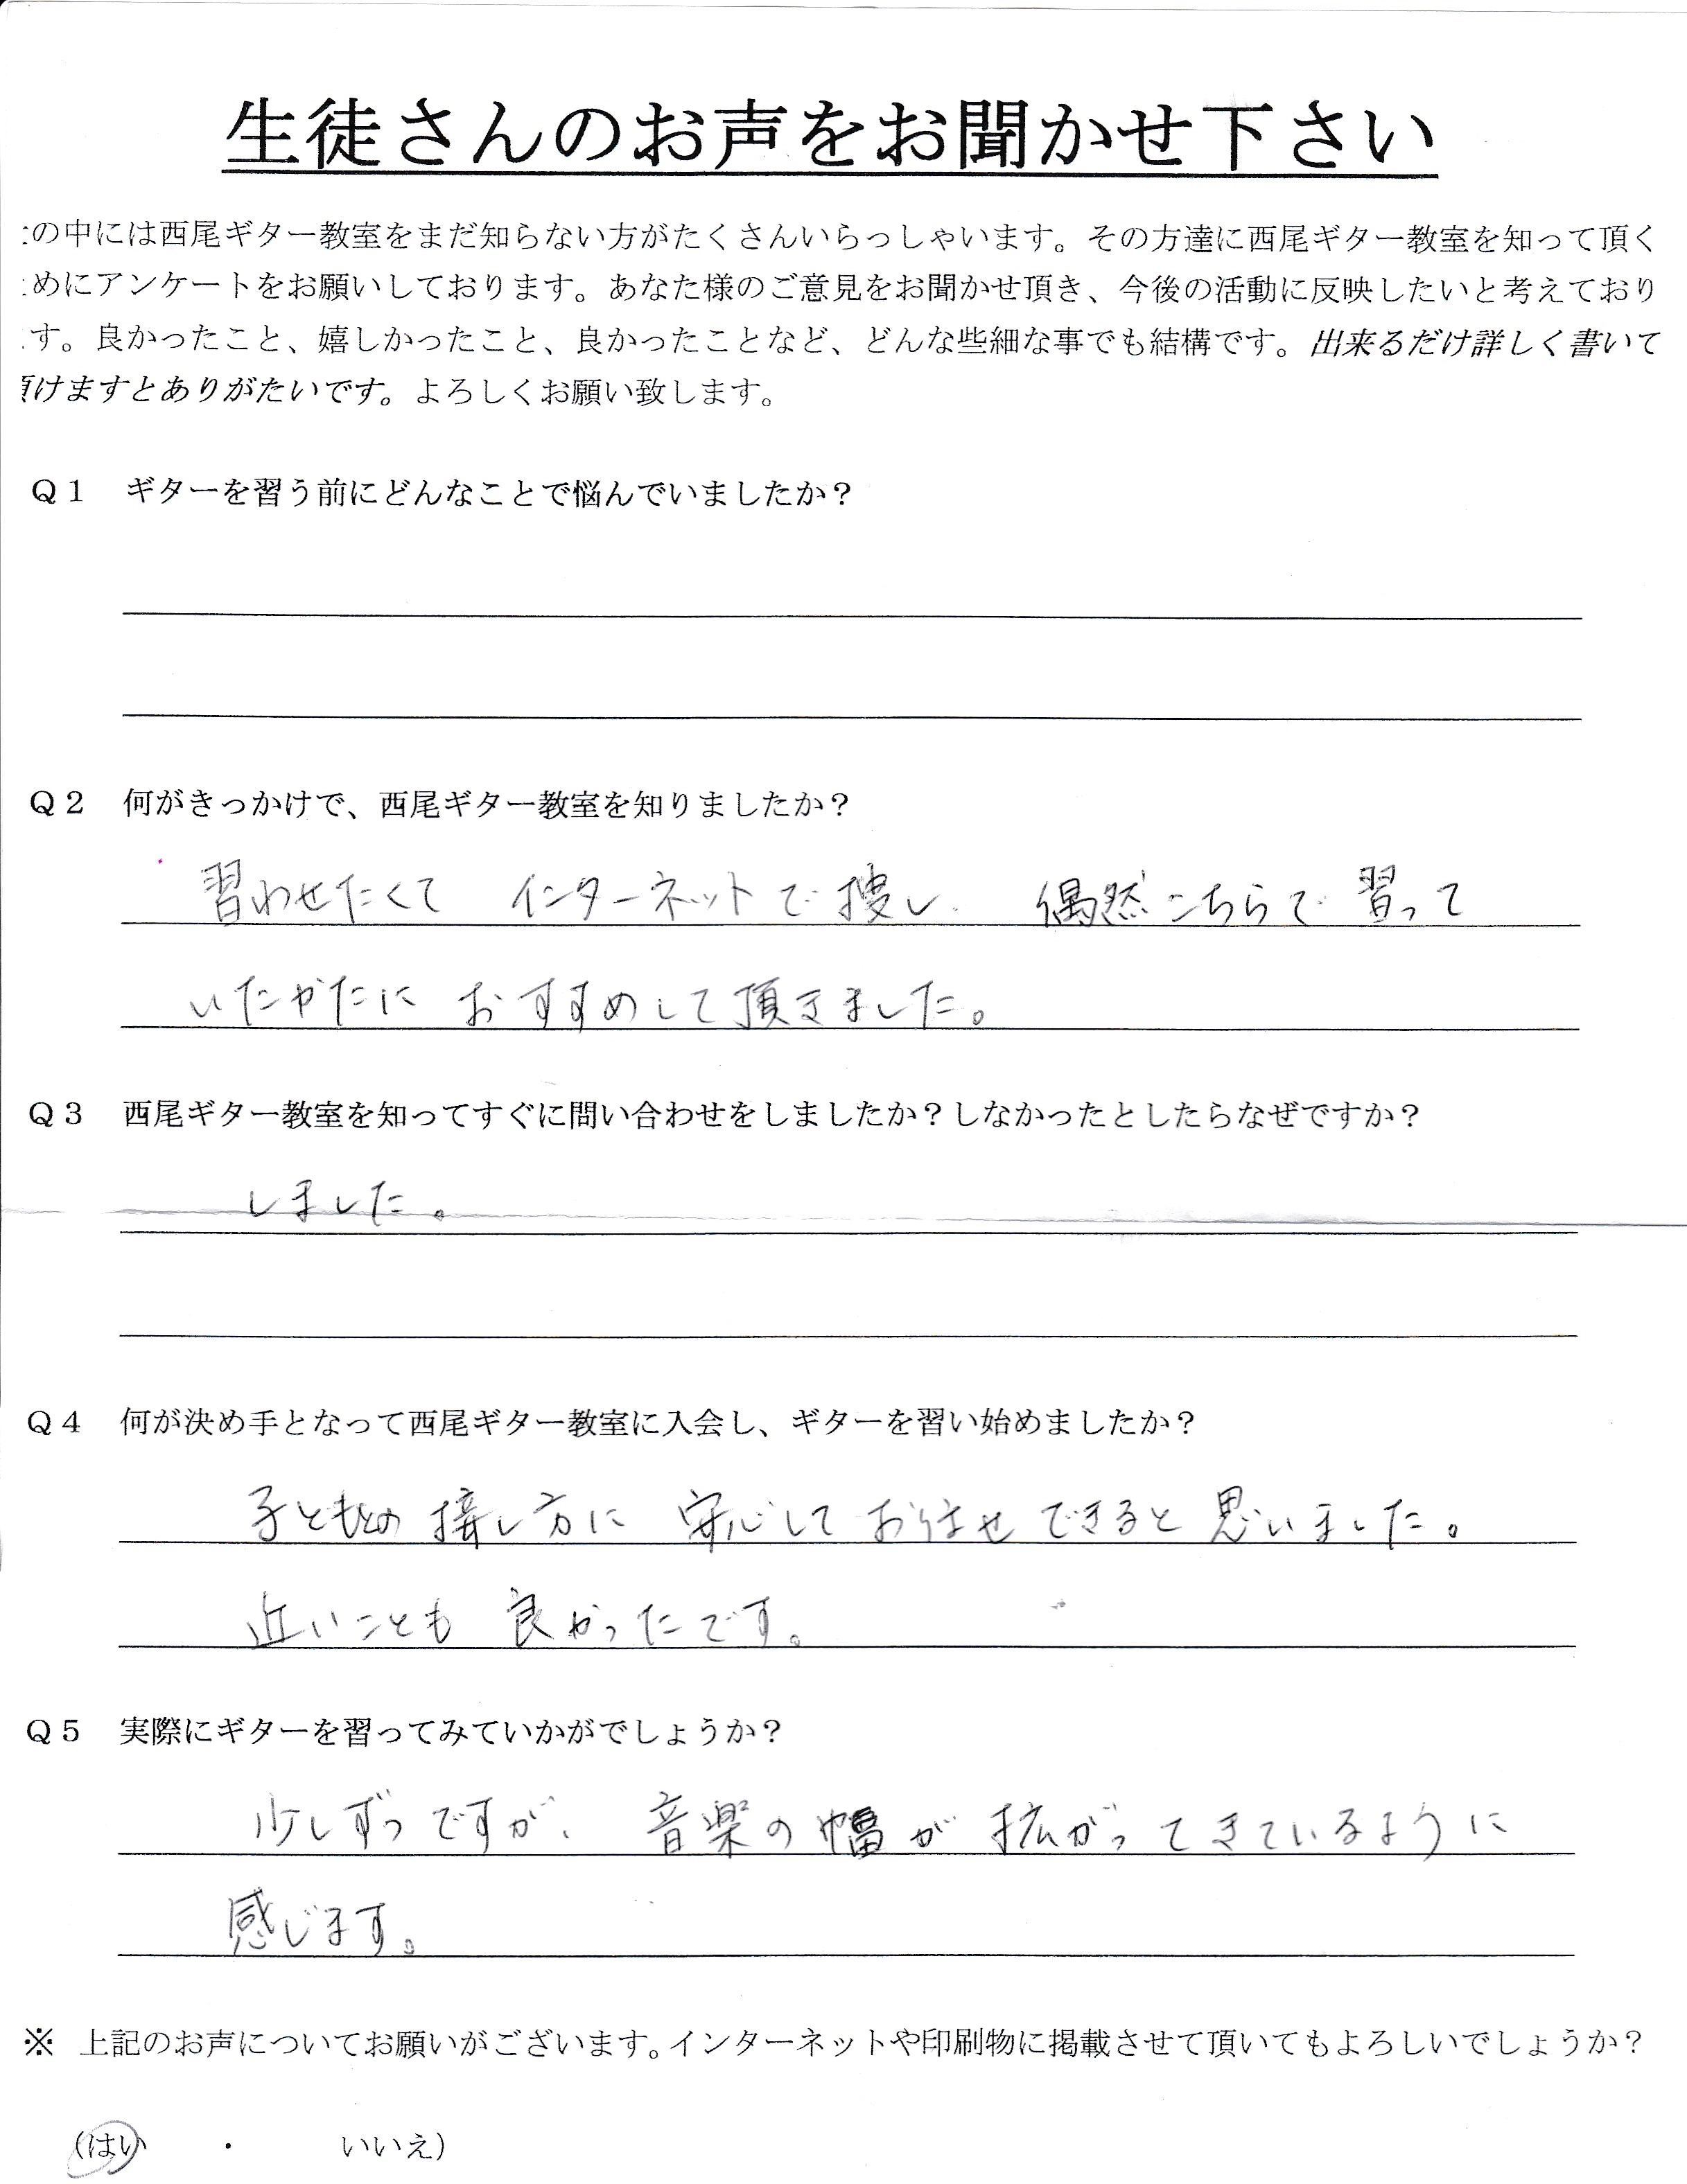 生徒さんのお声をお聞かせ下さい
の中には西尾ギター教室をまだ知らない方がたくさんいらっしゃいます。その方達に西尾ギター教室を知って頂く
めにアンケートをお願いしております。あなた様のご意見をお聞かせ頂き、今後の活動に反映したいと考えており
す。良かったこと、嬉しかったこと、良かったことなど、どんな些細な事でも結構です。出来るだけ詳しく書いて
頂けますとありがたいです。よろしくお願い致します。
Q1 ギターを習う前にどんなことで悩んでいましたか?
Q2 何がきっかけで、西尾ギター教室を知りましたか?
習わせたくて インターネットで捜し、 偶然こちらで習って
いたかたに おすすめして頂きました。
Q3 西尾ギター教室を知ってすぐに問い合わせをしましたか?しなかったとしたらなぜですか?
しました。
Q4 何が決め手となって西尾ギター教室に入会し、ギターを習い始めましたか?
子どもとの接し方に 安心して お任せできると思いました。
近いことも 良かったです。
Q5 実際にギターを習ってみていかがでしょうか?
少しずつですが、 音楽の幅が拡がってきているように
感じます。
※ 上記のお声についてお願いがございます。インターネットや印刷物に掲載させて頂いてもよろしいでしょうか?
(はい ・ いいえ)